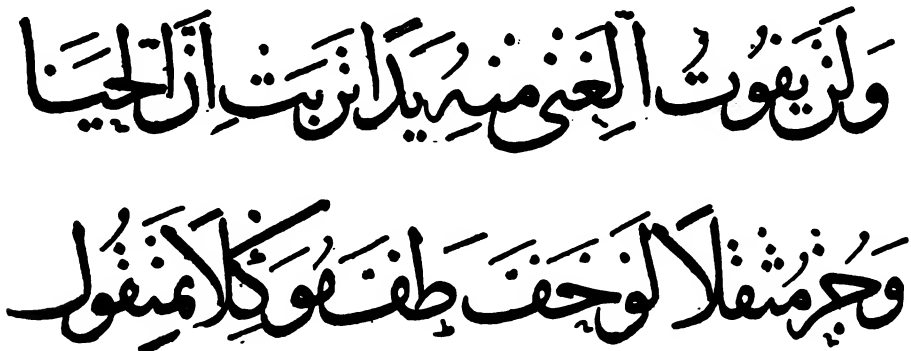 وَلَنْ يَفُوتُ الْغِنَى مِنْهُ يَدًا تَرِبَتْ إِنَّ الْحَيَا
مُثَقَّلًا لَوْ خَفَّ طَفَّ هُوَ كِلَا